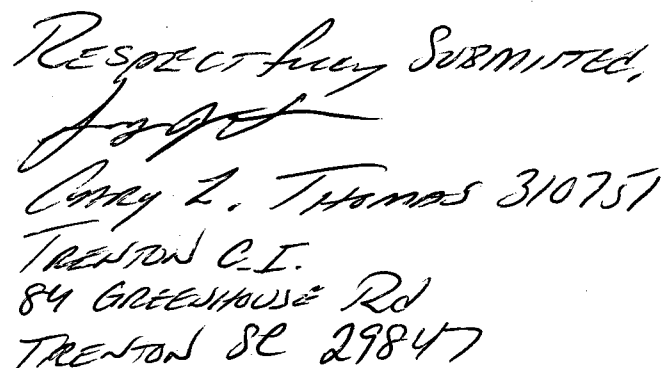 Respectfully Submitted,
Gary L. Thomas 310751
Trenton C.I.
84 Greenhouse Rd
Trenton SC 29847